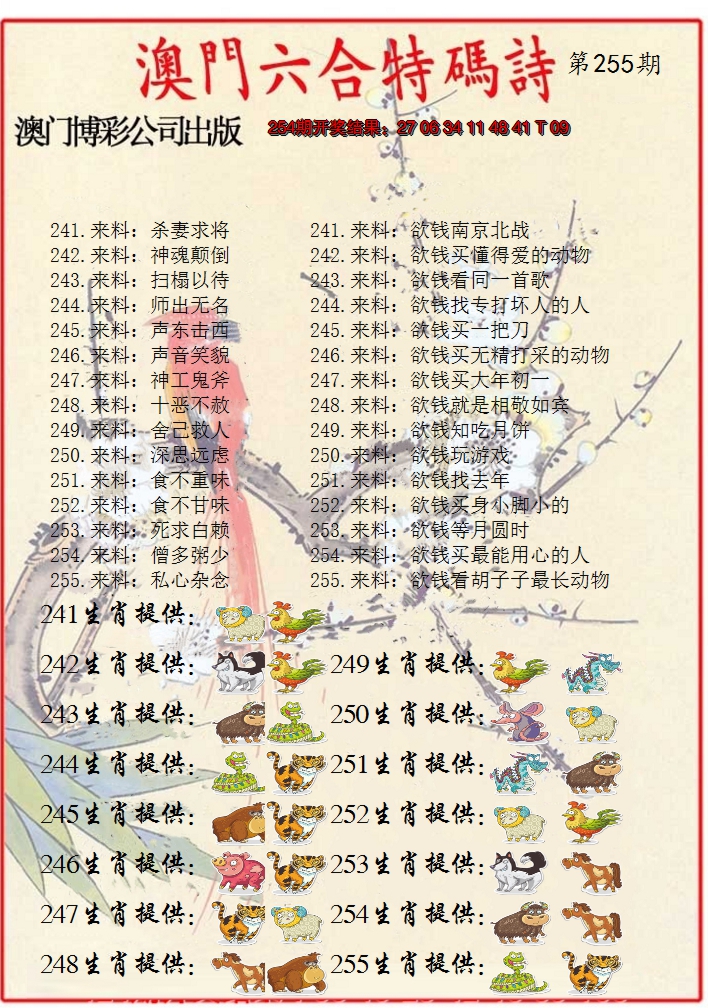 澳門六合特碼詩 第255期
澳门博彩公司出版 254期开奖结果：27 06 34 11 48 41 T 09
241.来料：杀妻求将 241.来料：欲钱南京北战
242.来料：神魂颠倒 242.来料：欲钱买懂得爱的动物
243.来料：扫榻以待 243.来料：欲钱看同一首歌
244.来料：师出无名 244.来料：欲钱找专打坏人的人
245.来料：声东击西 245.来料：欲钱买一把刀
246.来料：声音笑貌 246.来料：欲钱买无精打采的动物
247.来料：神工鬼斧 247.来料：欲钱买大年初一
248.来料：十恶不赦 248.来料：欲钱就是相敬如宾
249.来料：舍己救人 249.来料：欲钱知吃月饼
250.来料：深思远虑 250.来料：欲钱玩游戏
251.来料：食不重味 251.来料：欲钱找去年
252.来料：食不甘味 252.来料：欲钱买身小脚小的
253.来料：死求白赖 253.来料：欲钱等月圆时
254.来料：僧多粥少 254.来料：欲钱买最能用心的人
255.来料：私心杂念 255.来料：欲钱看胡子子最长动物
241生肖提供：
242生肖提供： 249生肖提供：
243生肖提供： 250生肖提供：
244生肖提供： 251生肖提供：
245生肖提供： 252生肖提供：
246生肖提供： 253生肖提供：
247生肖提供： 254生肖提供：
248生肖提供： 255生肖提供：